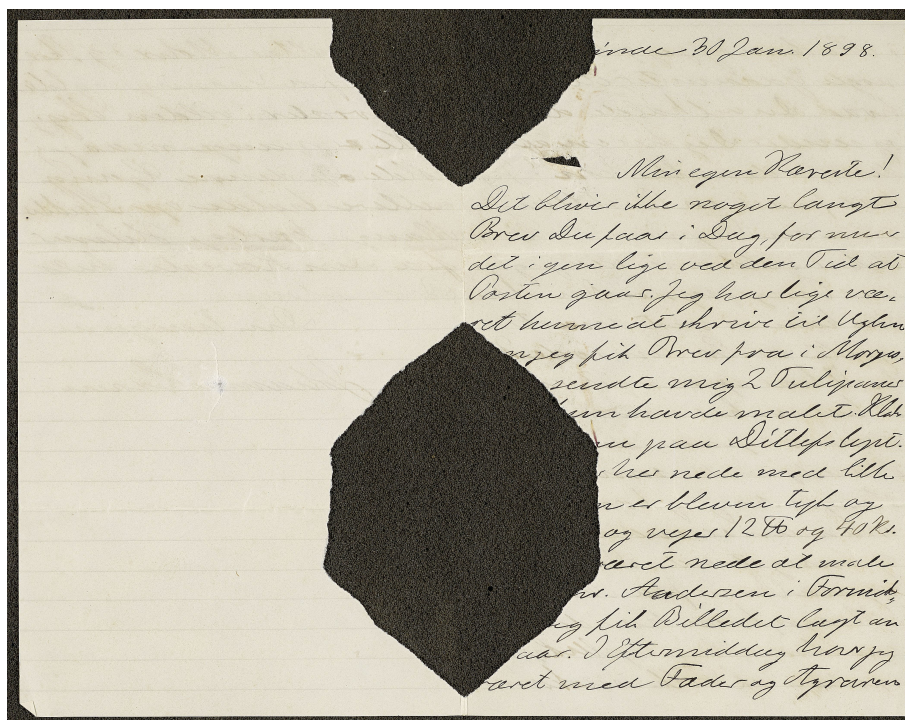 inde 30 Jan. 1898.
Min egen Kæreste!
Det bliver ikke noget langt
Brev Du faar i Dag, for nu er
det igen lige ved den Tid at
Posten gaar. Jeg har lige væ-
ret henne at skrive til
jeg fik Brev fra i Morges,
sendte mig 2 Tulipaner
hun havde malet.
paa
her nede med lille
er bleven tyk og
og vejer 12 ℔ og 40 Kv.
været nede at male
Andersen i Formid-
jeg fik Billedet lagt an
I Eftermiddag har jeg
været med Fader og Agraren